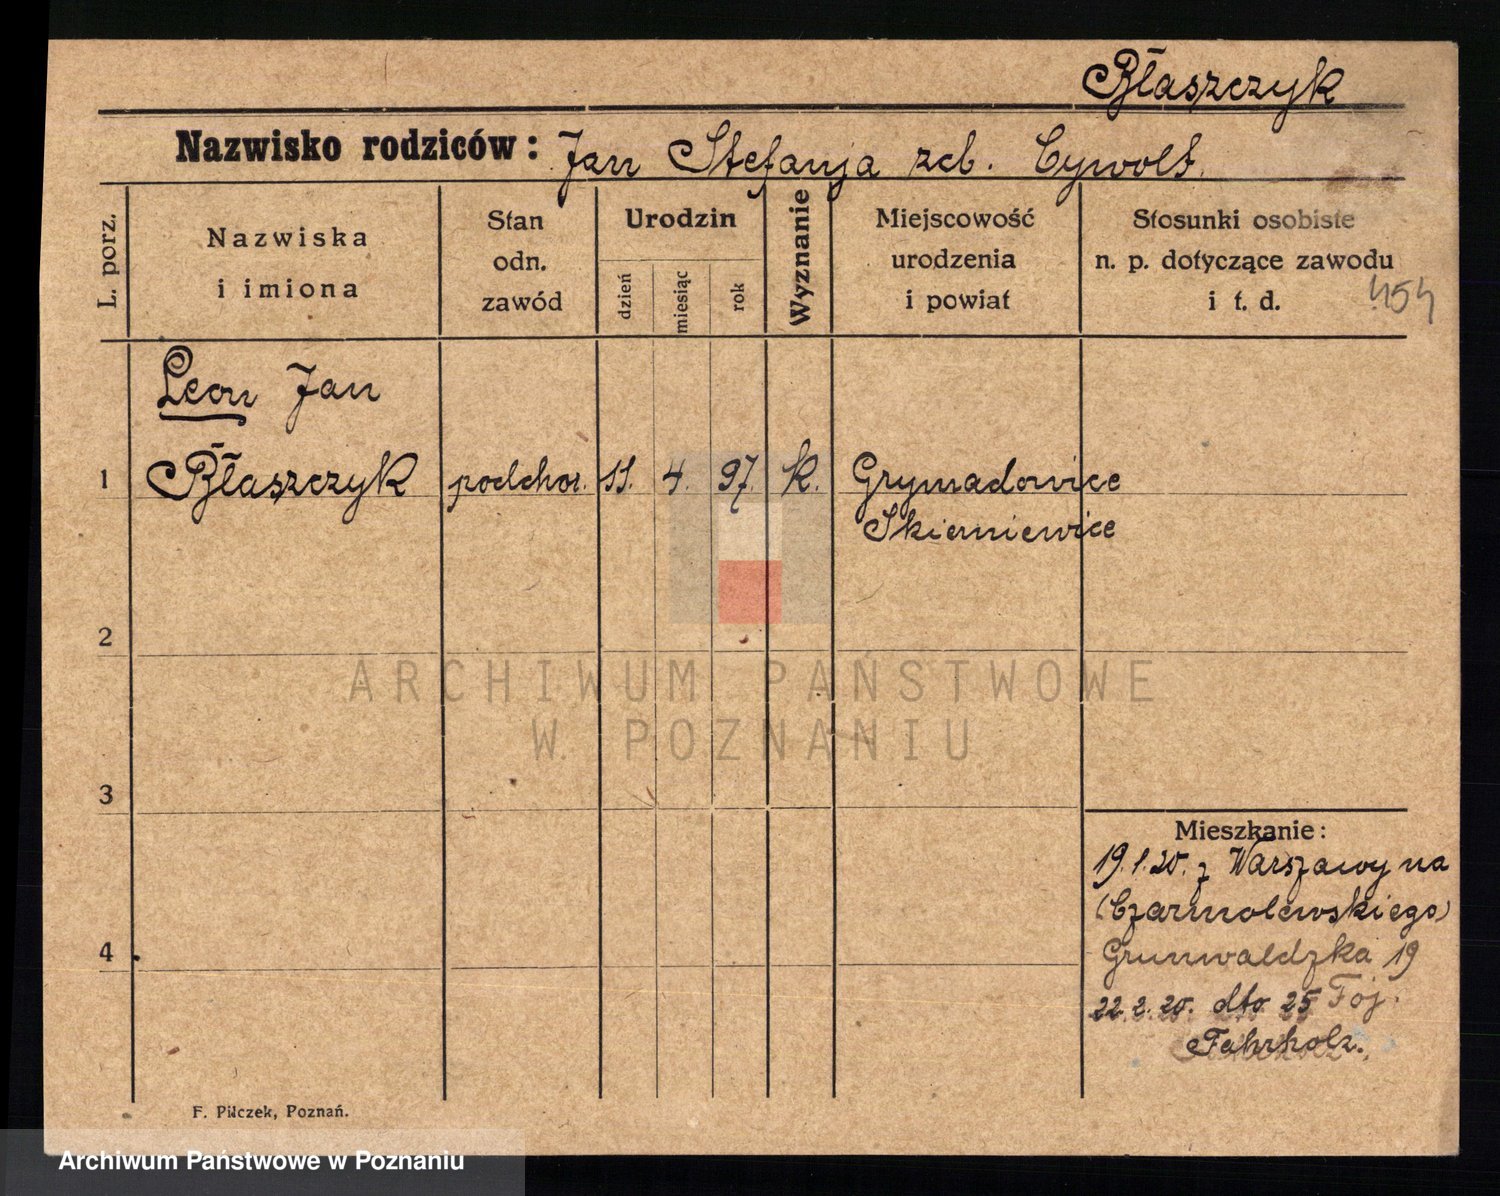 Błaszczyk
Nazwisko rodziców: Jan Stefanja
L. porz.
Nazwiska
i imiona
Stan
odn.
zawód
Urodzin
dzień
miesiąc
rok
Wyznanie
Miejscowość
urodzenia
i powiat
Stosunki osobiste
n. p. dotyczące zawodu
i t. d.
1
Leon Jan
Błaszczyk
podchor.
11.
4.
97.
K.
Grymadowice
Skierniewice
2
3
4
Mieszkanie:
19.1.20. z Warszawy na
(Czarmolewskiego)
Grunwaldzka 19
22.2.20. dto 25
Fahrholz.
F. Pilczek, Poznań.
ARCHIWUM PAŃSTWOWE
W POZNANIU
Archiwum Państwowe w Poznaniu